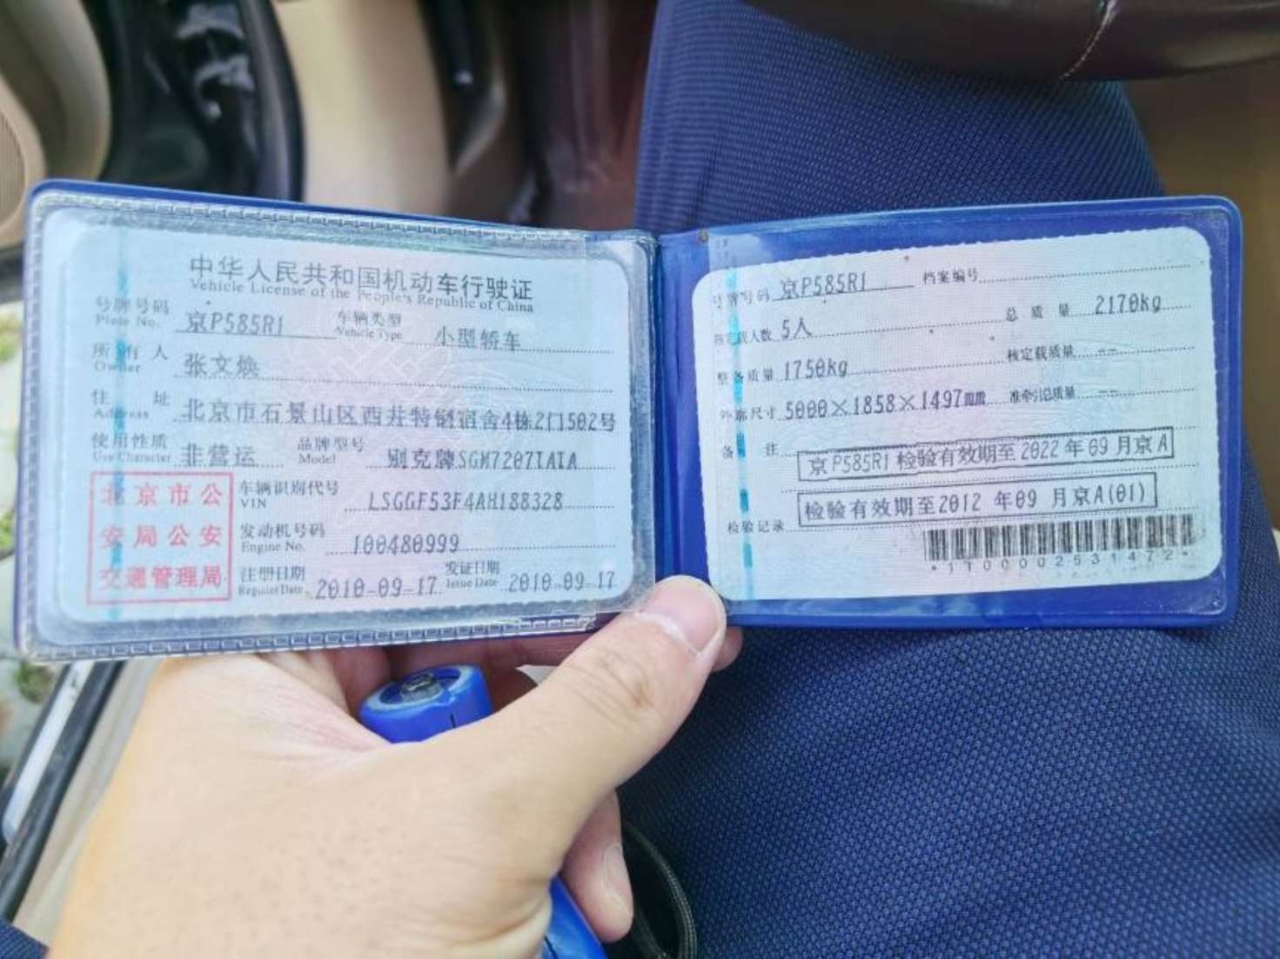 中华人民共和国机动车行驶证
Vehicle License of the People's Republic of China
号牌号码 京P585R1 车辆类型 小型轿车
Plate No. Vehicle Type
所有人 张文焕
Owner
住址 北京市石景山区西井特钢宿舍4栋2门502号
Address
使用性质 非营运 品牌型号 别克牌SGM7207IAIA
Use Character Model
北京市公
安局公安
交通管理局
车辆识别代号 LSGGF53F4AH188328
VIN
发动机号码 100480999
Engine No.
注册日期 2010-09-17 发证日期 2010-09-17
Register Date Issue Date
号牌号码 京P585R1 档案编号
核定载人数 5人 总质量 2170kg
整备质量 1750kg 核定载质量 --
外廓尺寸 5000×1858×1497mm 准牵引总质量 --
备注 京P585R1 检验有效期至2022年09月京A
检验有效期至2012 年09 月京A(01)
检验记录
*1T00002531472*